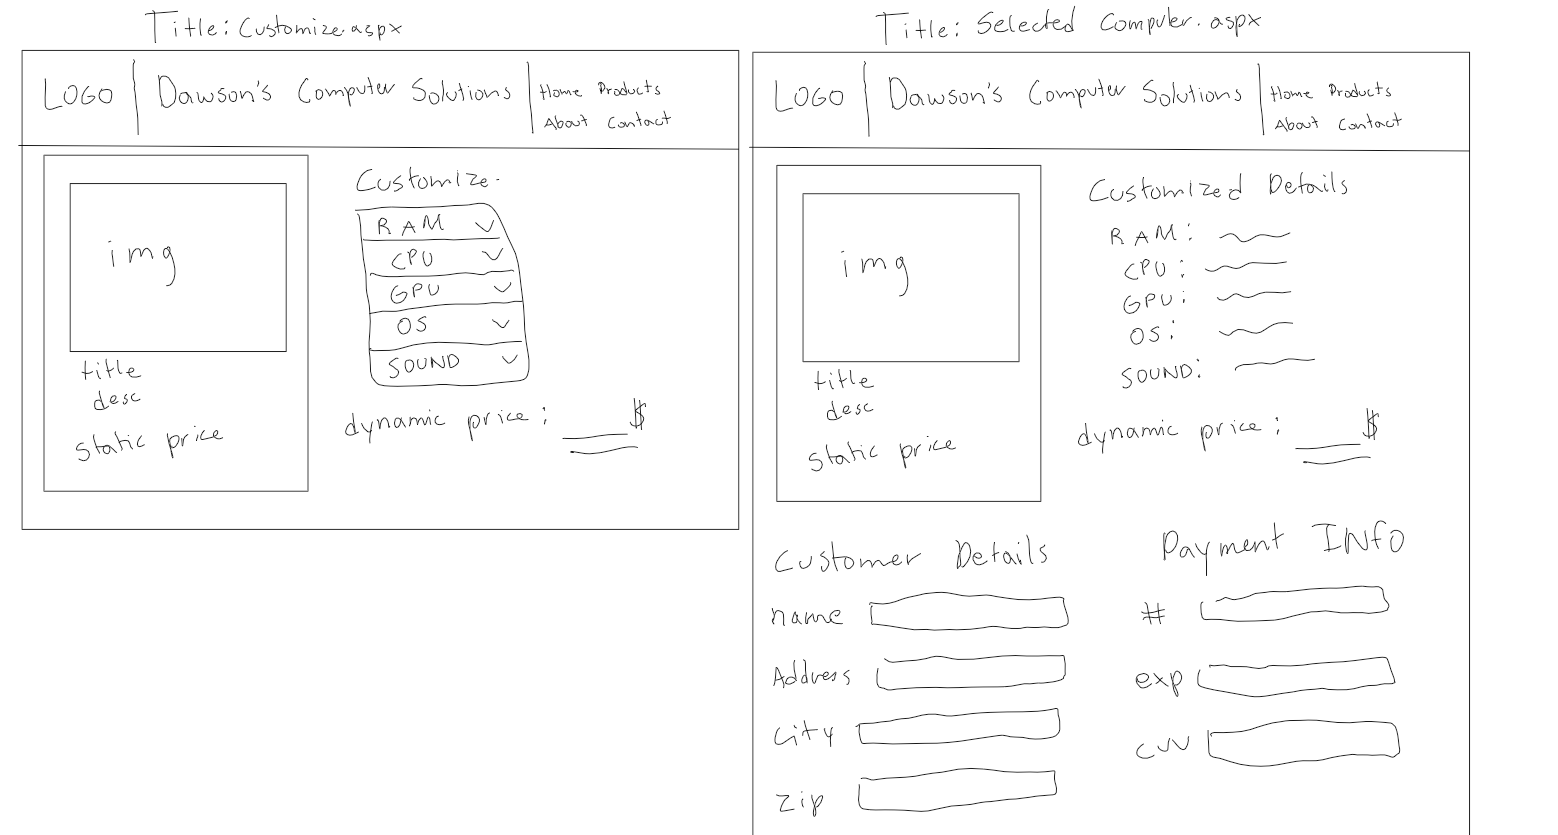 Title: Customize.aspx
LOGO Dawson's Computer Solutions Home Products
About Contact
img
title
desc
static price
Customize.
RAM
CPU
GPU
OS
SOUND
dynamic price: $
Title: Selected Computer.aspx
LOGO Dawson's Computer Solutions Home Products
About Contact
img
title
desc
static price
Customized Details
RAM:
CPU:
GPU:
OS:
SOUND:
dynamic price: $
Customer Details
name
Address
City
Zip
Payment INfo
#
exp
cvv